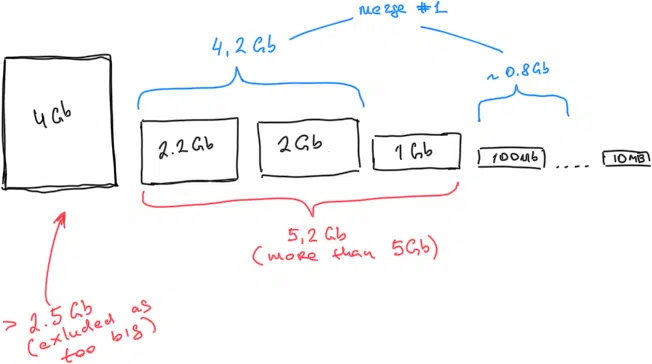 merge #1
4,2 Gb
~ 0.8Gb
4Gb
2.2Gb
2Gb
1 Gb
100Mb
....
10MB
5,2Gb
(more than 5Gb)
> 2.5Gb
(exluded as
too big)